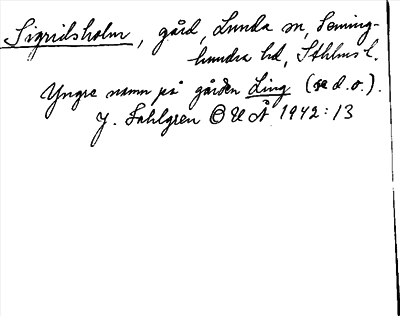 Sigridsholm, gård, Lunda sn, Seming-
hundra hd, Sthlms l.
Yngre namn på gården Ling (se d.o.).
J. Sahlgren OUÅ 1942:13